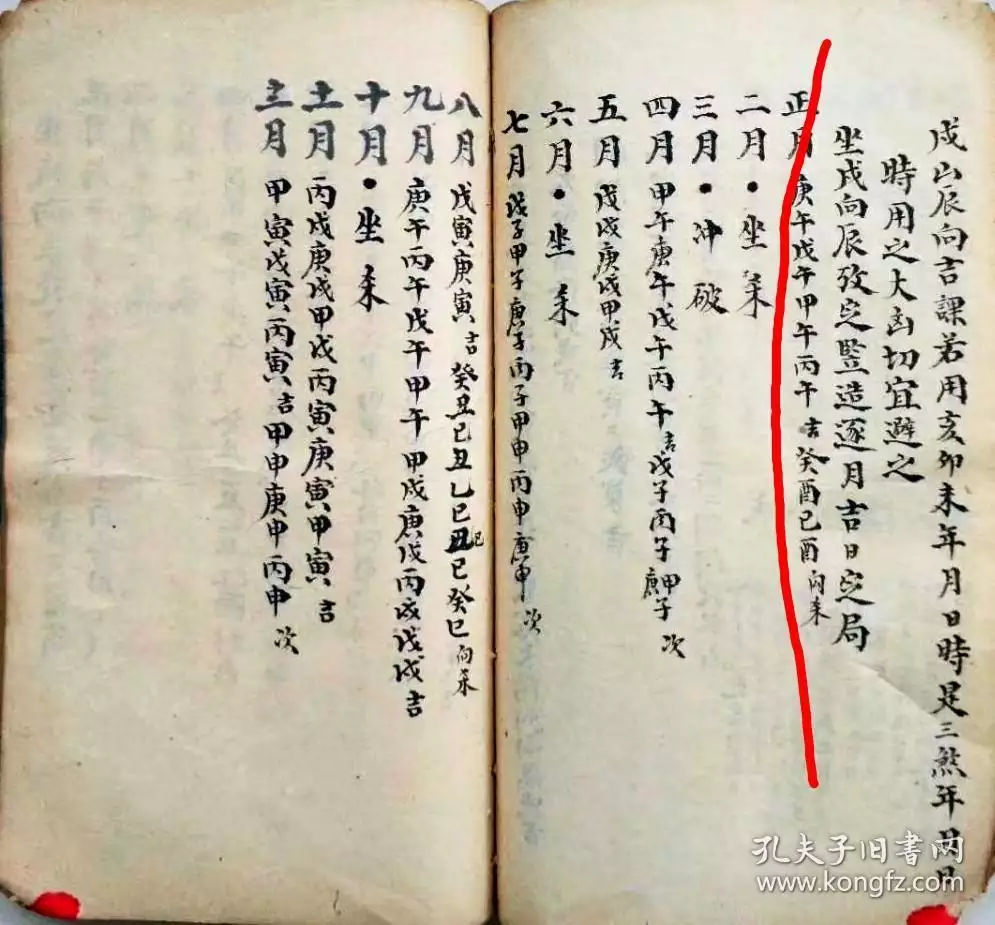 戍山辰向吉課若用亥卯未年月日時是三煞年月日
時用之大凶切宜避之
坐戍向辰攷定豎造逐月吉日定局
正月 庚午戊午甲午丙午 吉 癸酉己酉 向杀
二月·坐杀
三月·冲破
四月 甲午庚午戊午丙午 吉 戊子丙子庚子甲子 次
五月 戊戌庚戌甲戌 吉
六月·坐杀
七月 戊子甲子庚子丙子甲申丙申庚申 次
八月 戊寅庚寅 吉 癸丑己丑乙巳丑己癸巳 向杀
九月 庚午丙午戊午甲午甲戌庚戌丙戌戊戌 吉
十月·坐杀
十一月 丙戌庚戌甲戌丙寅庚寅甲寅 吉
十二月 甲寅戊寅丙寅 吉 甲申庚申丙申 次
孔夫子旧书网
www.kongfz.com